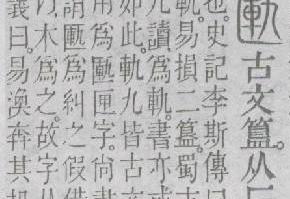 匭古文簋从匚
也。史記李斯傳曰
軌。易損二簋。蜀才
九讀爲軌。書亦或
如此。軌九皆古文
用爲匭匣字。尚書
謂匭爲糾之假借
刀木爲之。故字从
義曰。易渙奔其机